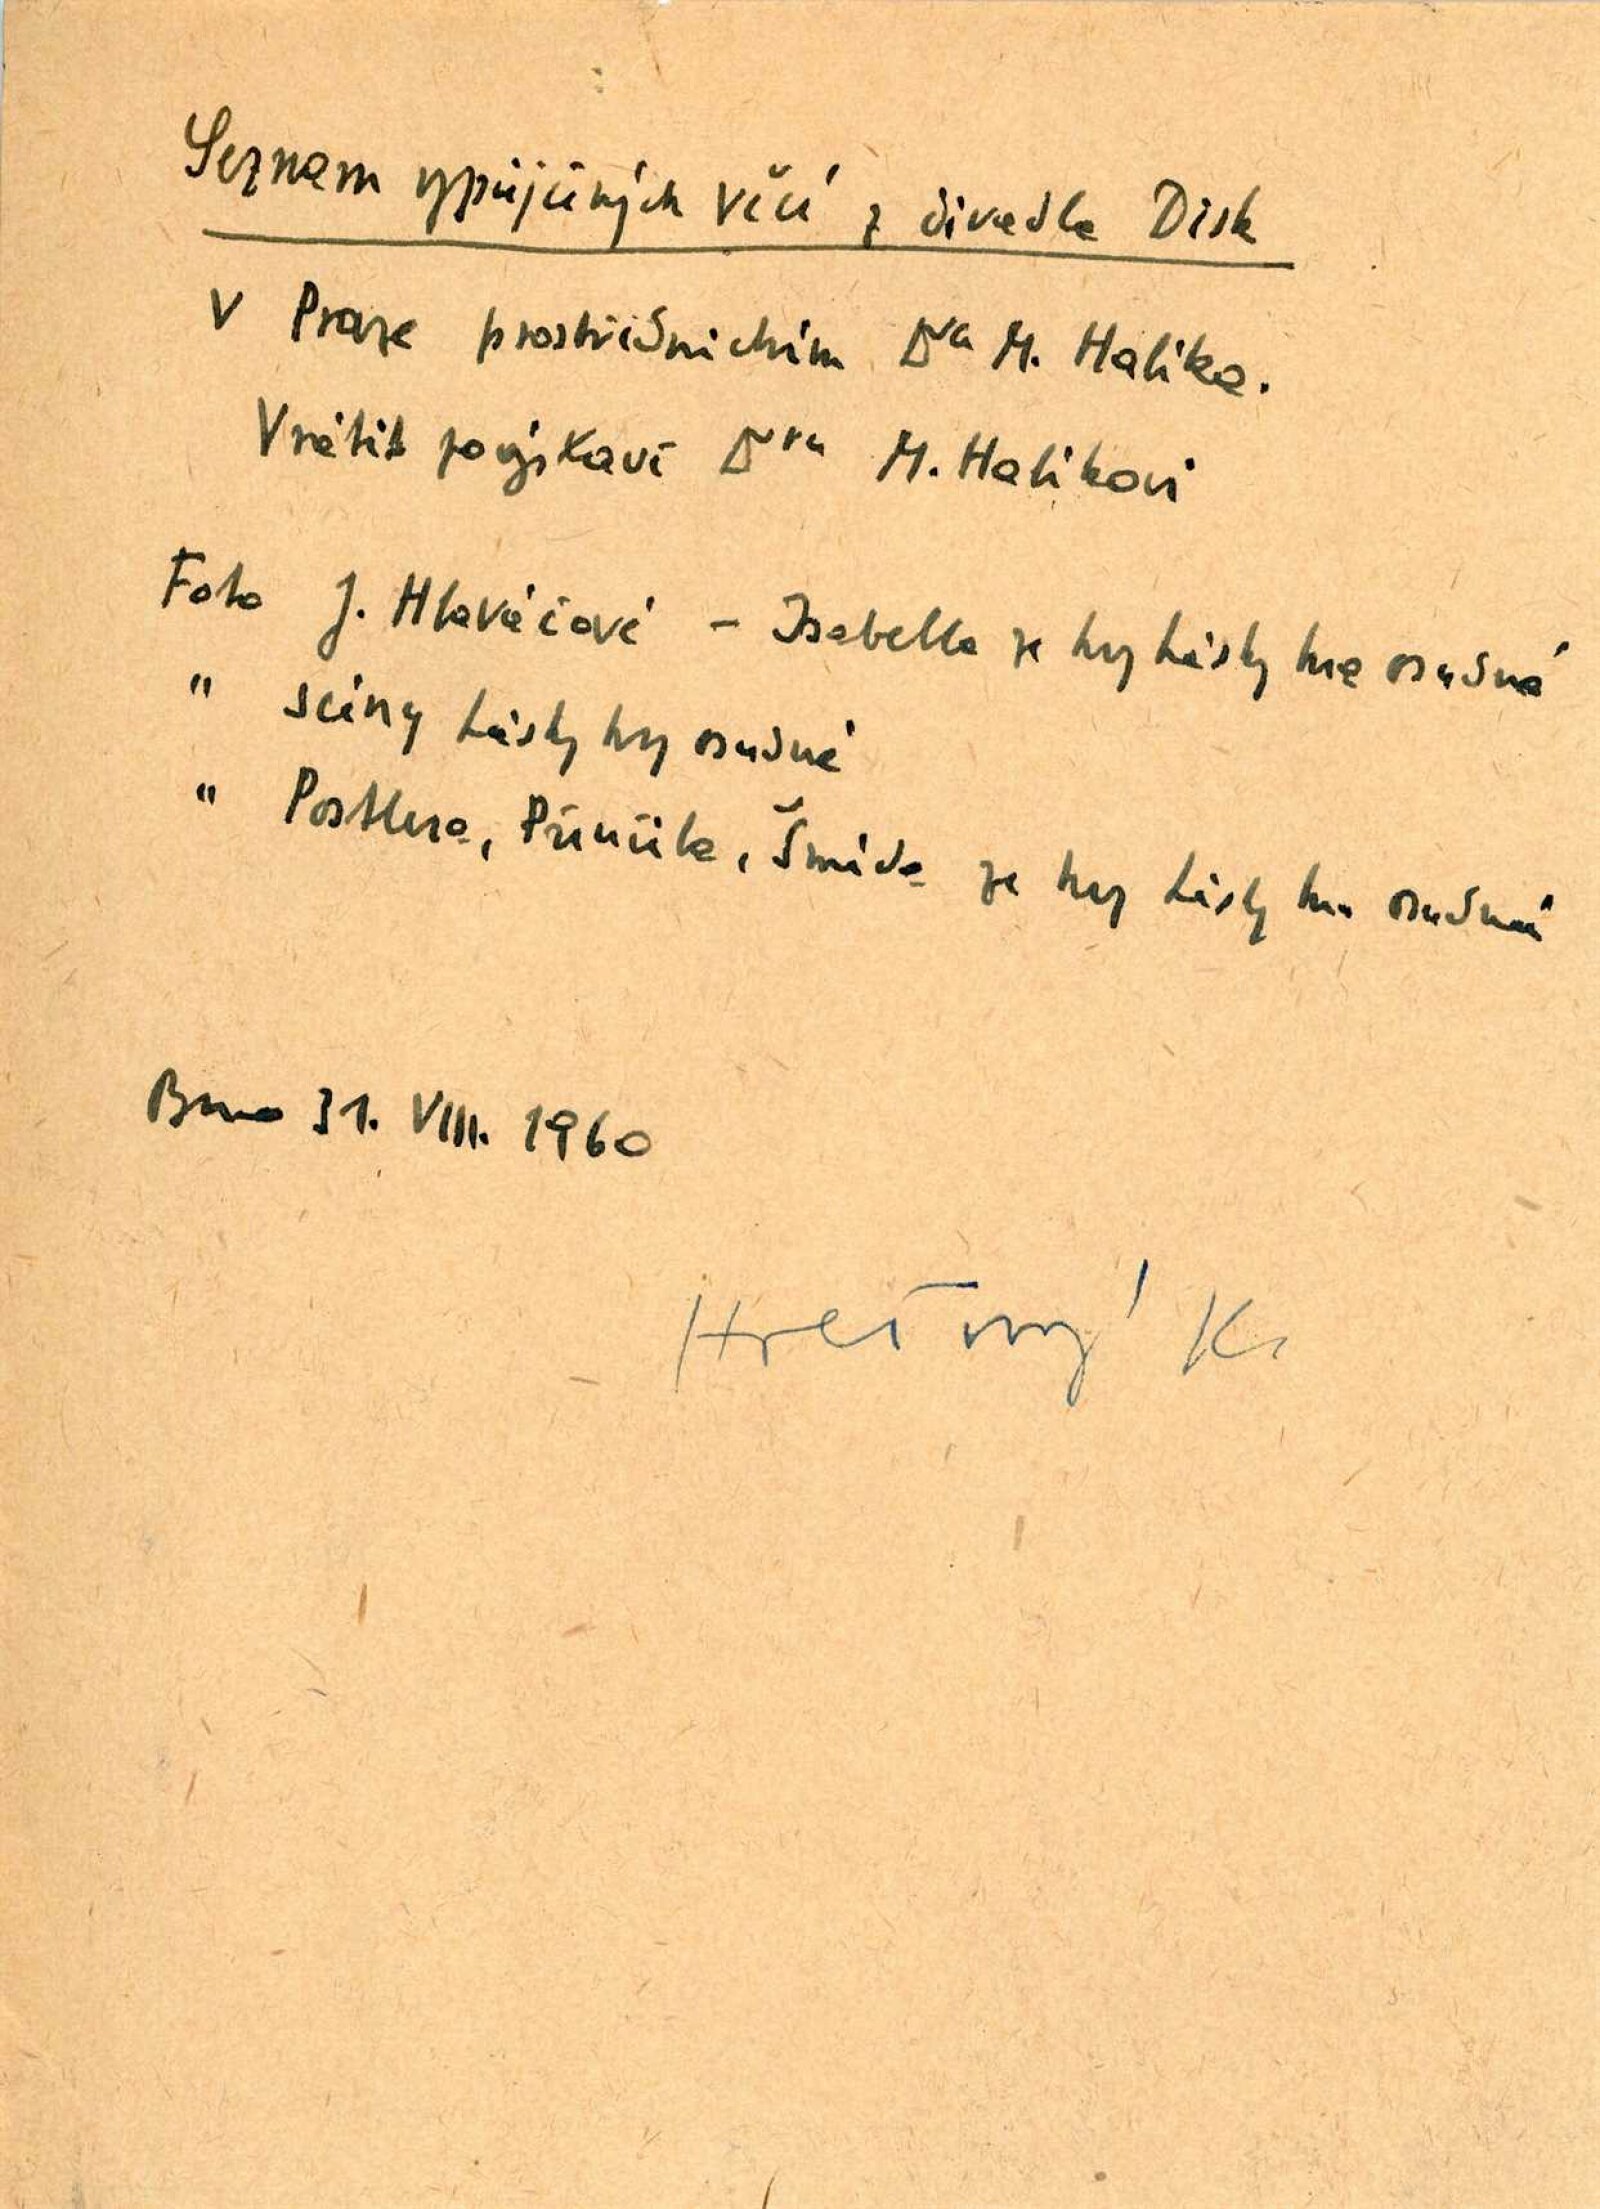 Seznam vypůjčených věcí z divadla Disk
V Praze prostřednictvím Dra M. Halíka.
Vrátit po výstavě Dru M. Halíkovi
Foto J. Hlaváčové - Isabella ze hry Lásky hra osudná
" scény Lásky hry osudné
" Postlera, Přeučila, Šmída ze hry Lásky hra osudná
Brno 31. VIII. 1960
K.